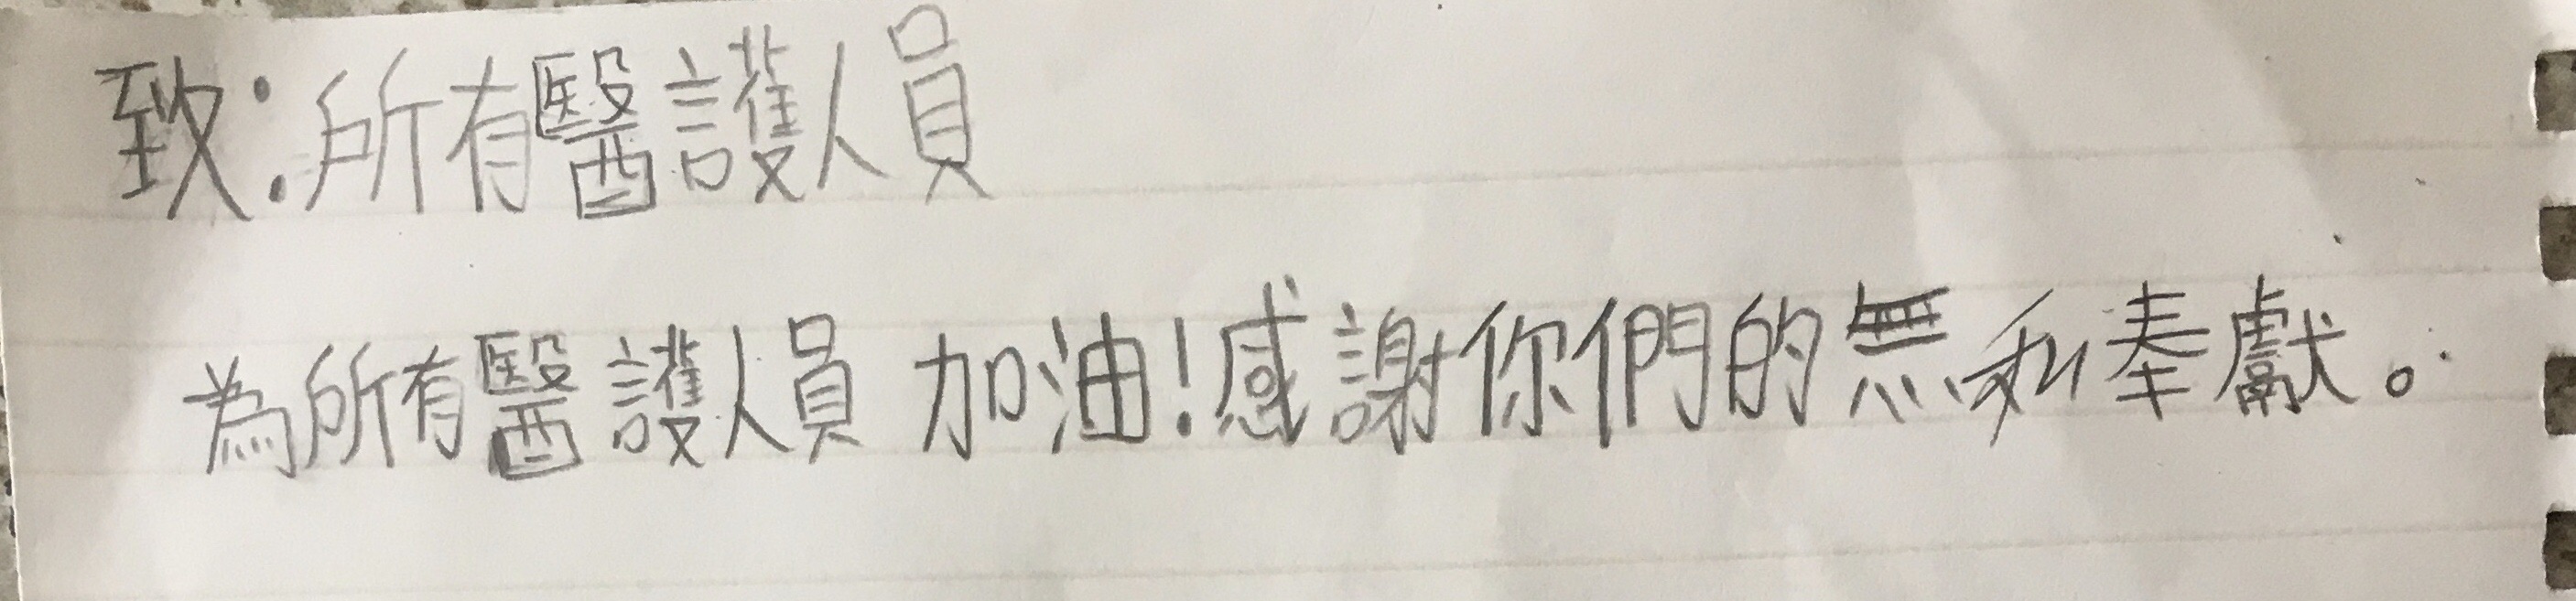 致：所有醫護人員
為所有醫護人員 加油！感謝你們的無私奉獻。